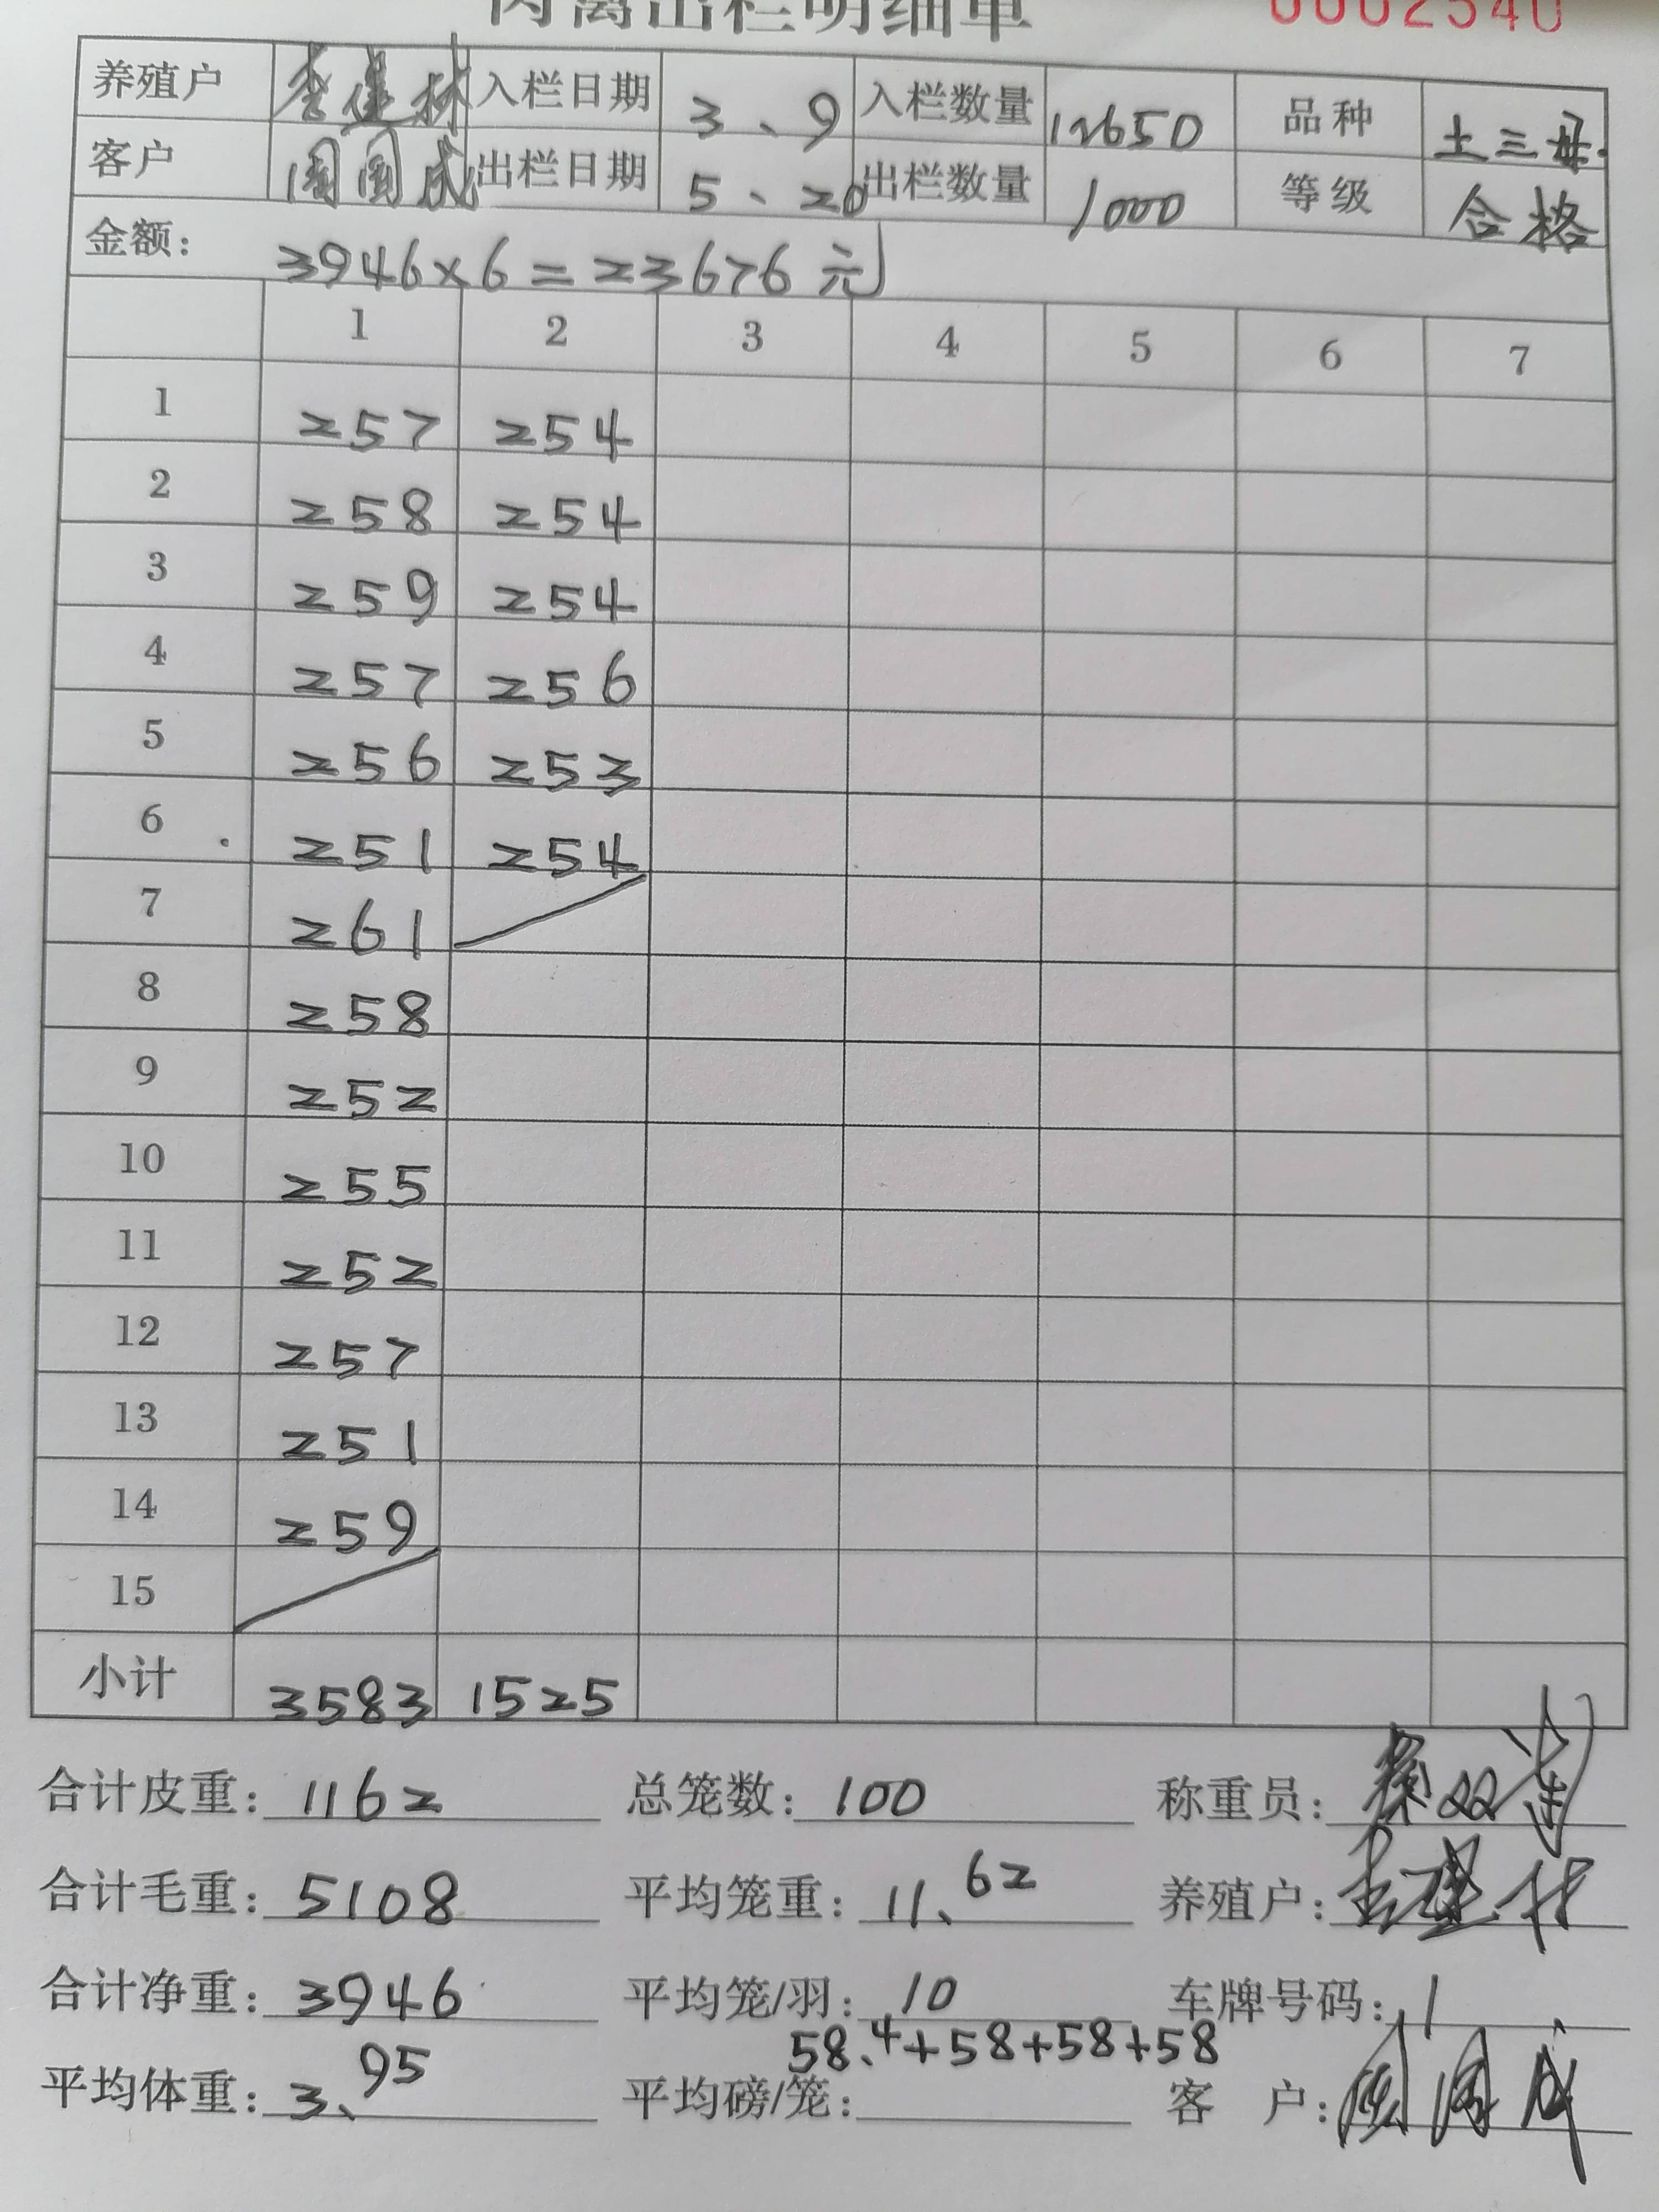 肉禽出栏明细单 0002540
养殖户 李建林 入栏日期 3、9 入栏数量 12650 品种 土三母.
客户 周国成 出栏日期 5、20 出栏数量 1000 等级 合格
金额: 3946×6=23676元
1 2 3 4 5 6 7
1 257 254
2 258 254
3 259 254
4 257 256
5 256 253
6 251 254
7 261
8 258
9 252
10 255
11 252
12 257
13 251
14 259
15
小计 3583 1525
合计皮重: 1162 总笼数: 100 称重员:
合计毛重: 5108 平均笼重: 11、62 养殖户: 李建林
合计净重: 3946 平均笼/羽: 10 车牌号码: 1
58.4+58+58+58
平均体重: 3、95 平均磅/笼: 客 户: 周国成